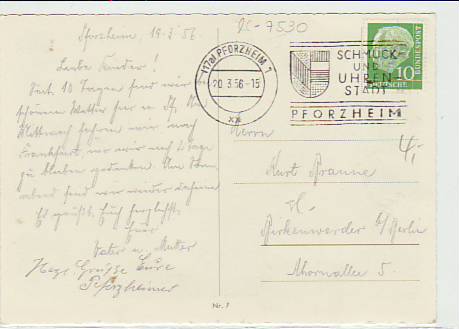 Pforzheim, 19.3.56
98-7530
Liebe Kinder!
Seit 10 Tagen sind wir
schönem Wetter hier in Pf. Am
Mittwoch fahren wir nach
Frankfurt, wo wir noch 2 Tage
zu bleiben gedenken. Am Sonn-
abend sind wir wieder daheim
Es grüßt Euch herzlichst
Eure
Vater u. Mutter
Herzl. Grüße Eure
Pforzheimer
(17a) PFORZHEIM 1
20.3.56-15
xx
SCHMUCK-
UND
UHREN-
STADT
PFORZHEIM
10
DEUTSCHE
BUNDESPOST
Herrn
Kurt Braune
Birkenwerder b/Berlin
Ahornallee 5.
Nr. 7